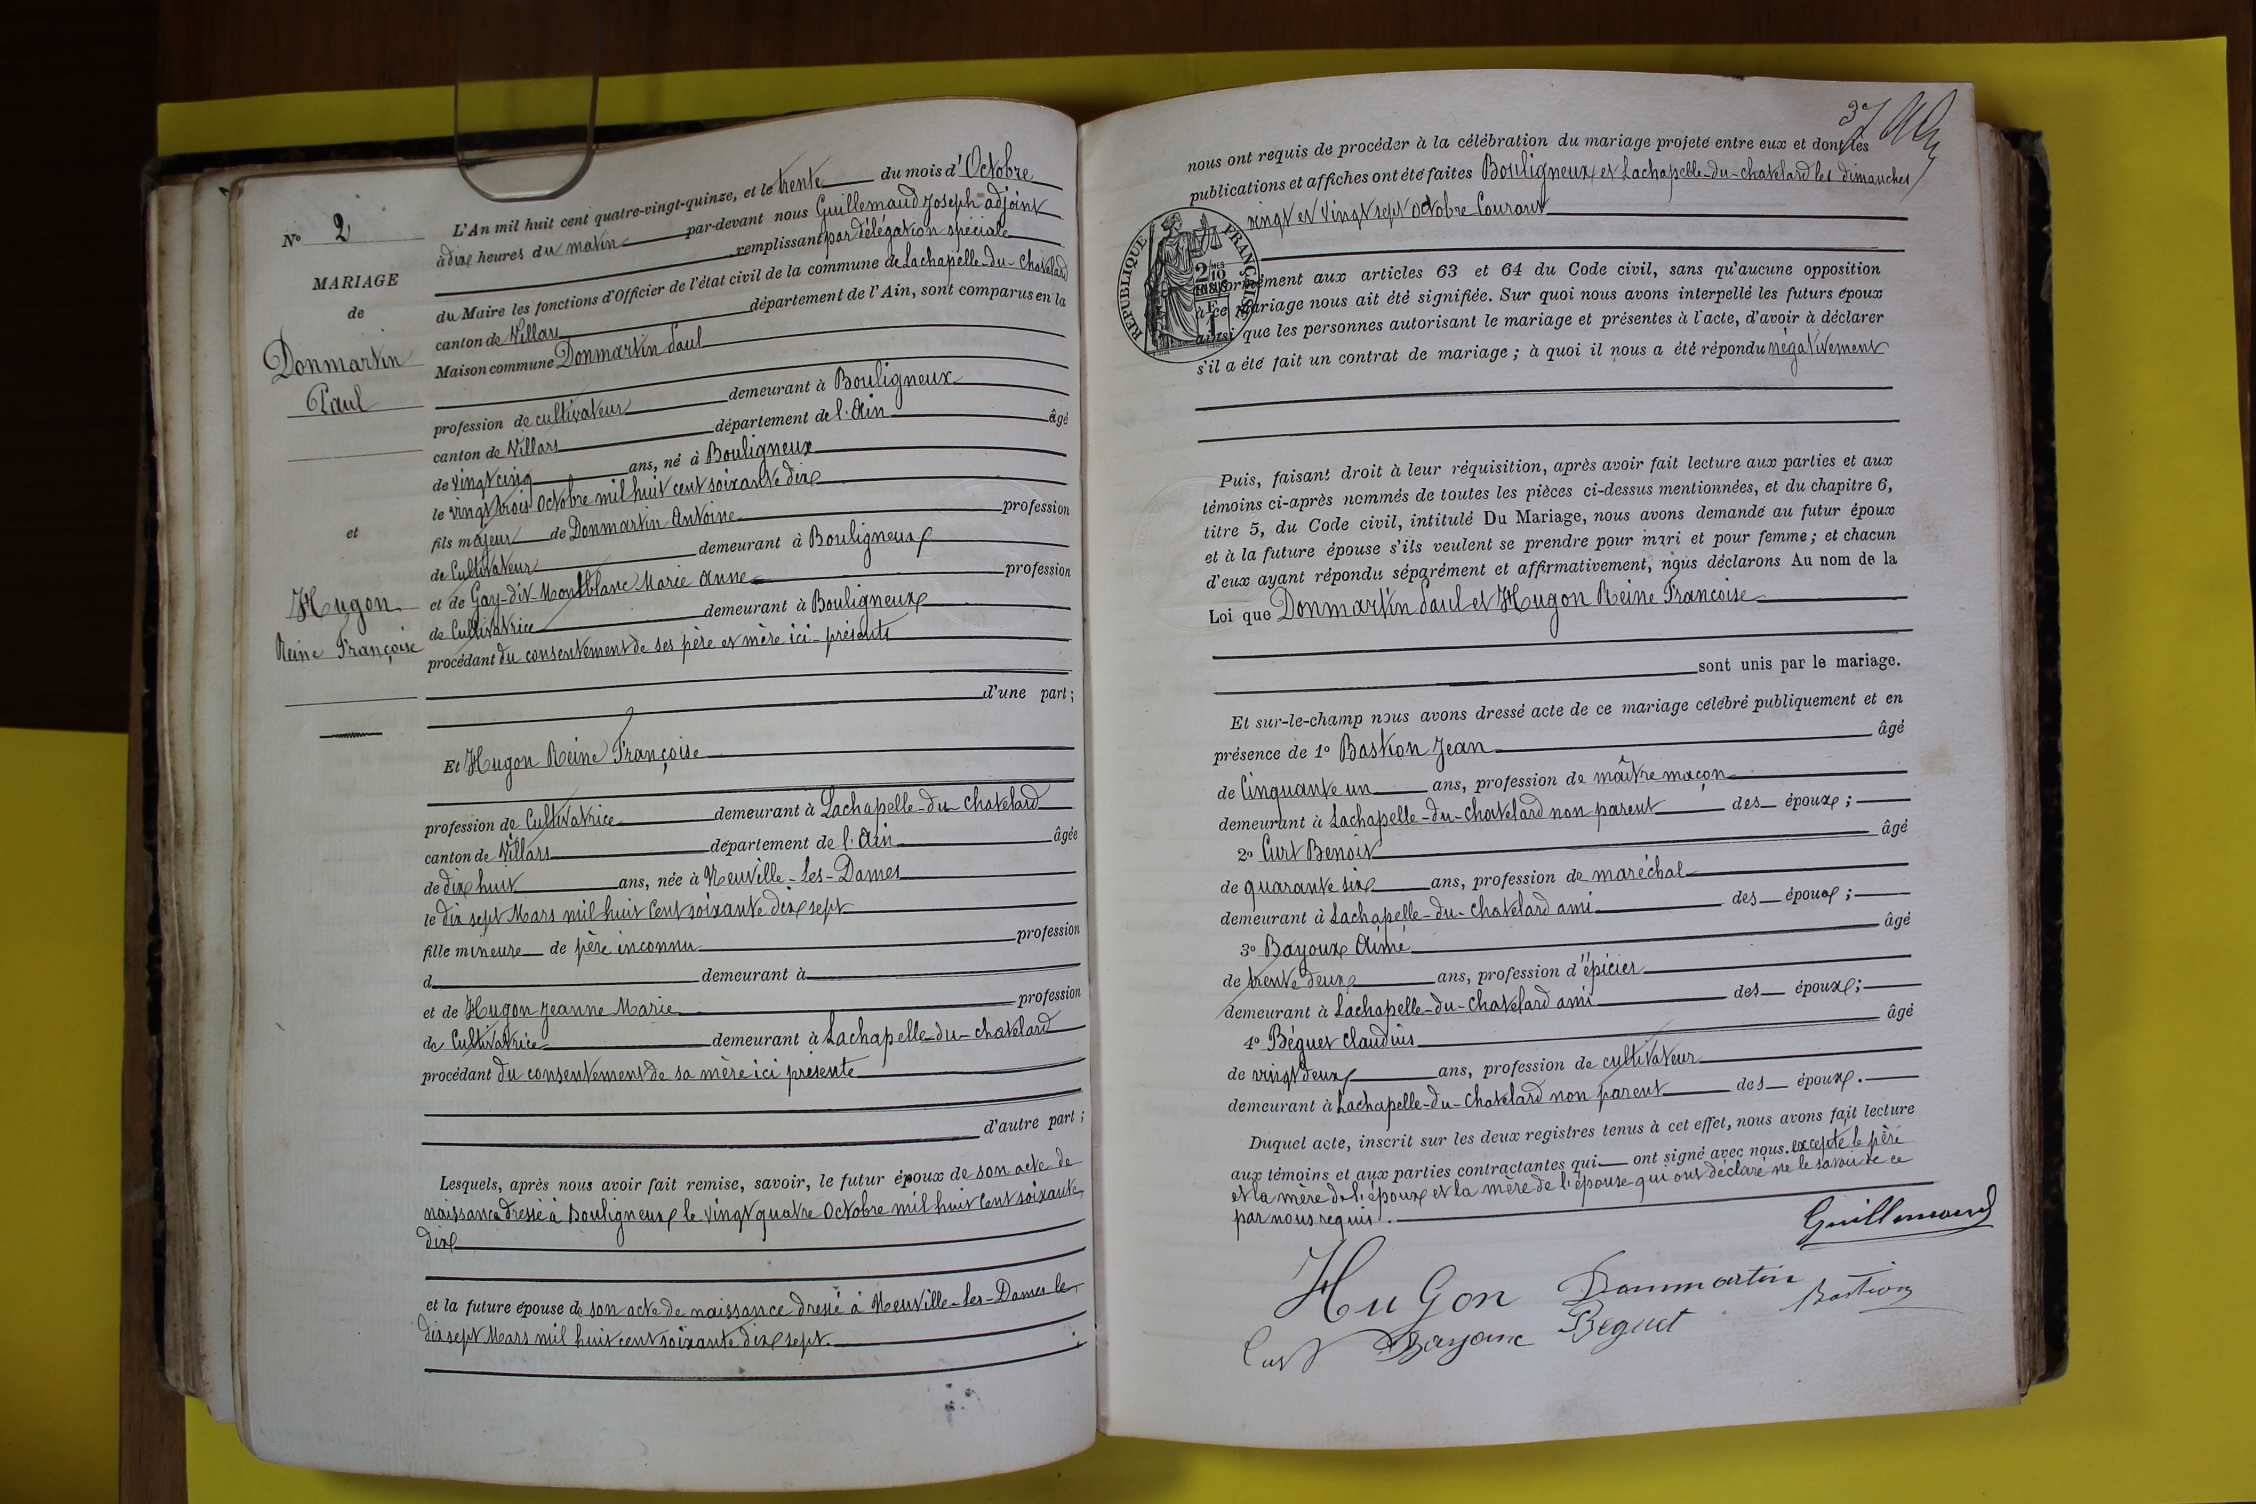 N° 2
MARIAGE
de
Donmartin
Paul
et
Hugon
Reine Françoise
L'An mil huit cent quatre-vingt-quinze, et le trente du mois d'Octobre
à dix heures du matin par-devant nous Guillemaud Joseph adjoint
remplissant par délégation spéciale
du Maire les fonctions d'Officier de l'état civil de la commune de Lachapelle-du-Chatelard
canton de Villars département de l'Ain, sont comparus en la
Maison commune Donmartin Paul
profession de cultivateur demeurant à Bouligneux
canton de Villars département de l'Ain âgé
de vingt cinq ans, né à Bouligneux
le vingt trois Octobre mil huit cent soixante dix
fils majeur de Donmartin Antoine profession
de Cultivateur demeurant à Bouligneux
et de Gay-dit-Montblanc Marie Anne profession
de Cultivatrice demeurant à Bouligneux
procédant du consentement de ses père et mère ici-présents
d'une part;
Et Hugon Reine Françoise
profession de Cultivatrice demeurant à Lachapelle-du-Chatelard
canton de Villars département de l'Ain âgée
de dix huit ans, née à Neuville-Les-Dames
le dix sept Mars mil huit Cent soixante dix sept
fille mineure de père inconnu profession
d demeurant à
et de Hugon Jeanne Marie profession
de Cultivatrice demeurant à Lachapelle-du-chatelard
procédant du consentement de sa mère ici présente
d'autre part;
Lesquels, après nous avoir fait remise, savoir, le futur époux de son acte de
naissance dressé à Bouligneux le vingt quatre Octobre mil huit Cent soixante
dix
et la future épouse de son acte de naissance dressé à Neuville-Les-Dames le
dix sept Mars mil huit cent soixante dix sept.
37
nous ont requis de procéder à la célébration du mariage projeté entre eux et dont les
publications et affiches ont été faites Bouligneux et Lachapelle-du-chatelard les dimanches
vingt et vingt sept Octobre Courant
RÉPUBLIQUE FRANÇAISE
2/10
conformément aux articles 63 et 64 du Code civil, sans qu'aucune opposition
à ce mariage nous ait été signifiée. Sur quoi nous avons interpellé les futurs époux
ainsi que les personnes autorisant le mariage et présentes à l'acte, d'avoir à déclarer
s'il a été fait un contrat de mariage; à quoi il nous a été répondu négativement
Puis, faisant droit à leur réquisition, après avoir fait lecture aux parties et aux
témoins ci-après nommés de toutes les pièces ci-dessus mentionnées, et du chapitre 6,
titre 5, du Code civil, intitulé Du Mariage, nous avons demandé au futur époux
et à la future épouse s'ils veulent se prendre pour mari et pour femme; et chacun
d'eux ayant répondu séparément et affirmativement, nous déclarons Au nom de la
Loi que Donmartin Paul et Hugon Reine Françoise
sont unis par le mariage.
Et sur-le-champ nous avons dressé acte de ce mariage célébré publiquement et en
présence de 1° Bastion Jean âgé
de Cinquante un ans, profession de maître maçon
demeurant à Lachapelle-du-chatelard non parent des époux;
2° Curt Benoit âgé
de quarante six ans, profession de maréchal
demeurant à Lachapelle-du-chatelard ami des époux;
3° Bayoux Aimé âgé
de trente deux ans, profession d'épicier
demeurant à Lachapelle-du-chatelard ami des époux;
4° Béguet Claudius âgé
de vingt deux ans, profession de cultivateur
demeurant à Lachapelle-du-Chatelard non parent des époux.
Duquel acte, inscrit sur les deux registres tenus à cet effet, nous avons fait lecture
aux témoins et aux parties contractantes qui ont signé avec nous. excepté le père
et la mère de l'époux et la mère de l'épouse qui ont déclaré ne le savoir de ce
par nous requis.
Guillemaud
Hugon Donmartin Bastion
Curt Bayoux Beguet